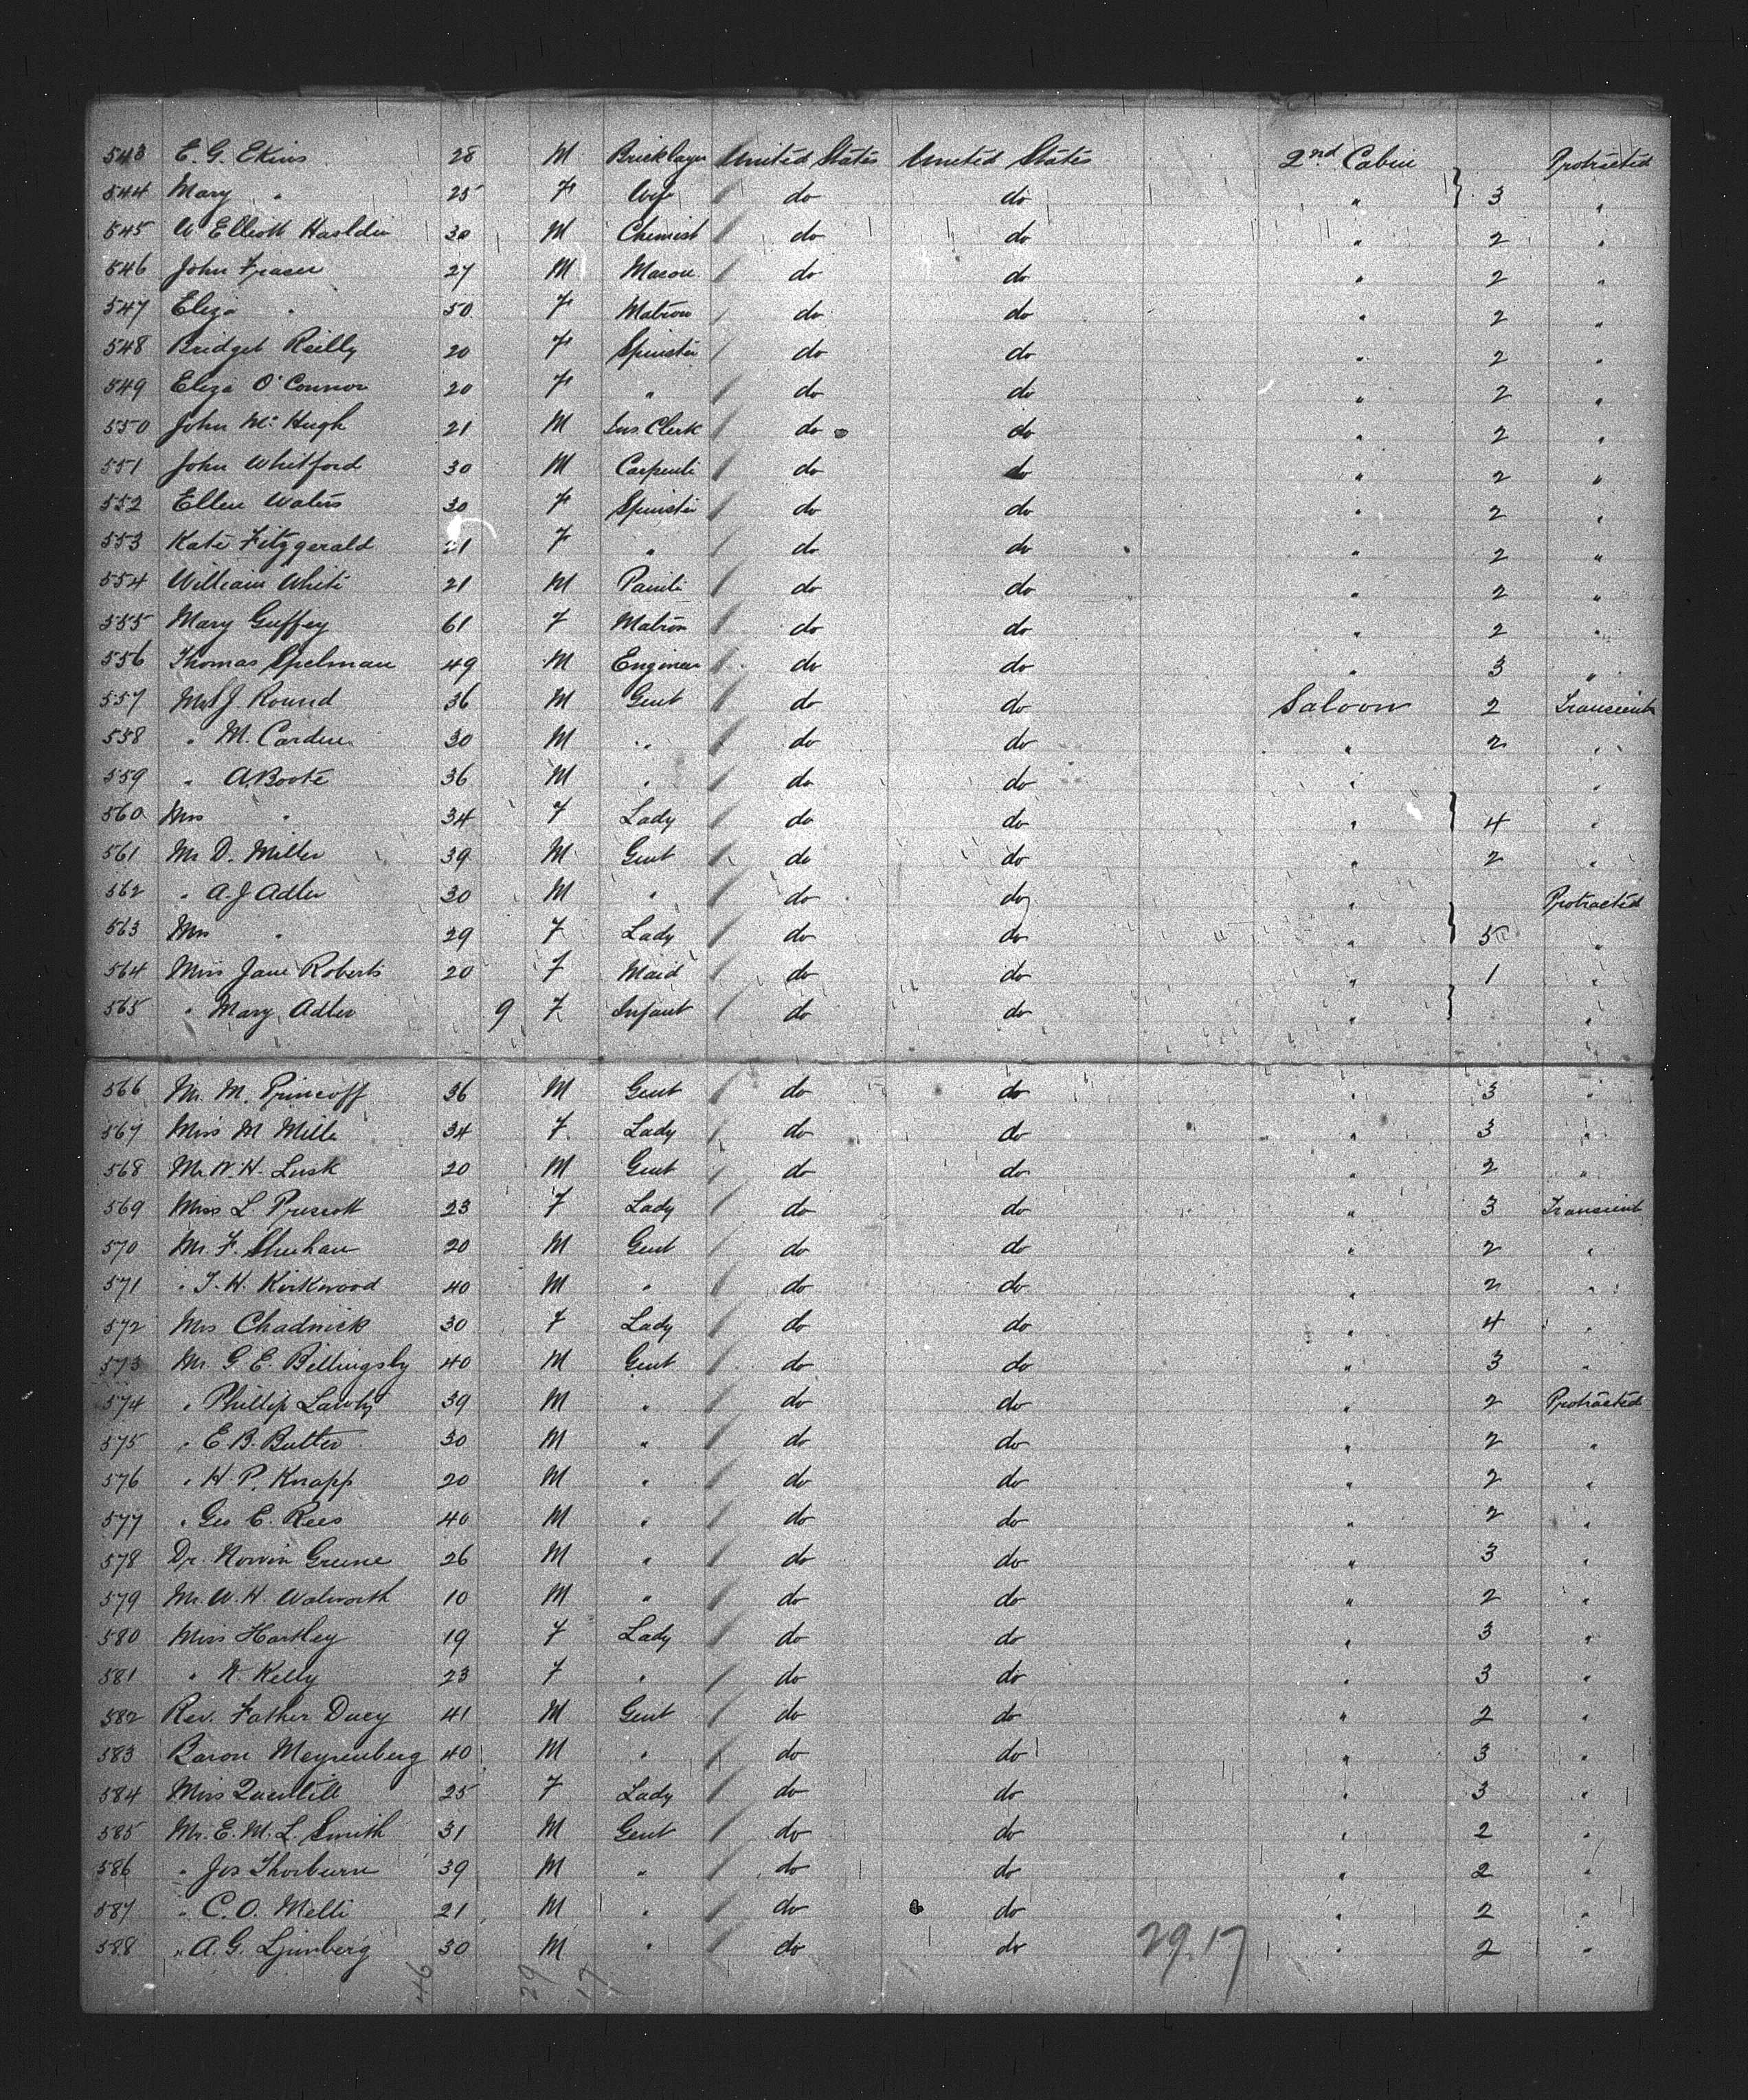 543 E. G. Ekins 28 M Bricklayer United States United States 2nd Cabin Protracted
544 Mary " 25 F Wife do do " } 3 "
545 W Elliott Haslden 30 M Chemist do do " 2 "
546 John Fraser 27 M Mason do do " 2 "
547 Eliza " 50 F Matron do do " 2 "
548 Bridget Reilly 20 F Spinster do do " 2 "
549 Eliza O'Connor 20 F " do do " 2 "
550 John McHugh 21 M Ins. Clerk do do " 2 "
551 John Whitford 30 M Carpente do do " 2 "
552 Ellen Waters 30 F Spinster do do " 2 "
553 Kate Fitzgerald 21 F " do do " 2 "
554 William White 21 M Painte do do " 2 "
555 Mary Guffey 61 F Matron do do " 2 "
556 Thomas Spelman 49 M Engineer do do " 3 "
557 Mr J. Round 36 M Gent do do Saloon 2 Transient
558 " M. Carden 30 M " do do " 2 "
559 " A. Boote 36 M " do do " "
560 Mrs " 34 F Lady do do " } 4 "
561 Mr D. Miller 39 M Gent do do " 2 "
562 " A. J Adler 30 M " do do " Protracted
563 Mrs " 29 F Lady do do " } 5 "
564 Miss Jane Roberts 20 F Maid do do " 1 "
565 " Mary Adler 9 F Infant do do " } "
566 Mr. M. Princoff 36 M Gent do do " 3 "
567 Miss M Mille 34 F Lady do do " 3 "
568 Mr W. H. Lusk 20 M Gent do do " 2 "
569 Miss L. Prescott 23 F Lady do do " 3 Transient
570 Mr. F. Sheehan 20 M Gent do do " 2 "
571 " T. H. Kirkwood 40 M " do do " 2 "
572 Mrs Chadwick 30 F Lady do do " 4 "
573 Mr. G. E. Billingsby 40 M Gent do do " 3 "
574 " Phillip 39 M " do do " 2 Protracted
575 " E. B. Butter 30 M " do do " 2 "
576 " H. P. Knapp 20 M " do do " 2 "
577 " Geo E. Rees 40 M " do do " 2 "
578 Dr. Norvin Greene 26 M " do do " 3 "
579 Mr. W. H. Walworth 10 M " do do " 2 "
580 Miss Hartley 19 F Lady do do " 3 "
581 " N. Kelly 23 F " do do " 3 "
582 Rev. Father Ducy 41 M Gent do do " 2 "
583 Baron Meysenberg 40 M " do do " 3 "
584 Miss 25 F Lady do do " 3 "
585 Mr. E. M. L. Smith 31 M Gent do do " 2 "
586 " Jos Thorburn 39 M " do do " 2 "
587 " C. O. Melli 21 M " do do " 2 "
588 " A. G. Ljunberg 30 M " do do 29.17 " 2 "
46 29 17